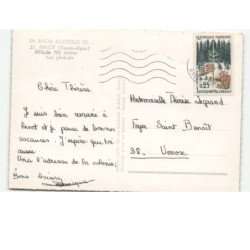 EN AVION AU-DESSUS DE...
25. ANNOT (Basses-Alpes)
Altitude 705 mètres
Vue générale
REPUBLIQUE FRANÇAISE
0,25
Chère Thérèse,
Mademoiselle Thérèse
Je suis bien arrivée à
Annot et je passe de bonnes
Foyer Saint Benoît
vacances. J'espère que toi
aussi.
38. Voiron
Voici l'adresse de la colonie:
Bons baisers